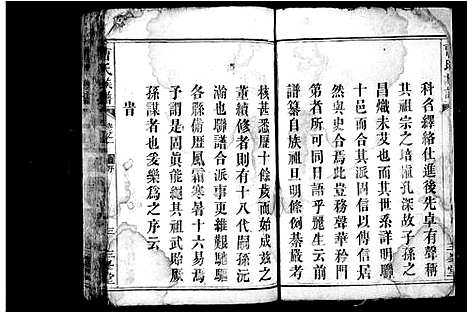 科名繹絡仕進後先卓有聲稱
其祖宗之培植孔深故子孫之
昌熾未艾也而其世系詳明聯
十邑而合其派固信以傳信居
然與史合焉此豈務聲華矜門
第者所可同日語乎麗生云前
譜纂自族祖旦明例綦嚴考
核甚悉歷十餘歲而始成茲之
董續修者則有十八代嗣孫沅
瀚也聯譜合派事更難艱馳驅
各縣備歷風霜寒暑十六易裘
予謂是固眞能繩其祖武貽厥
孫謀者也爰樂為之序云
旹
曹氏族譜